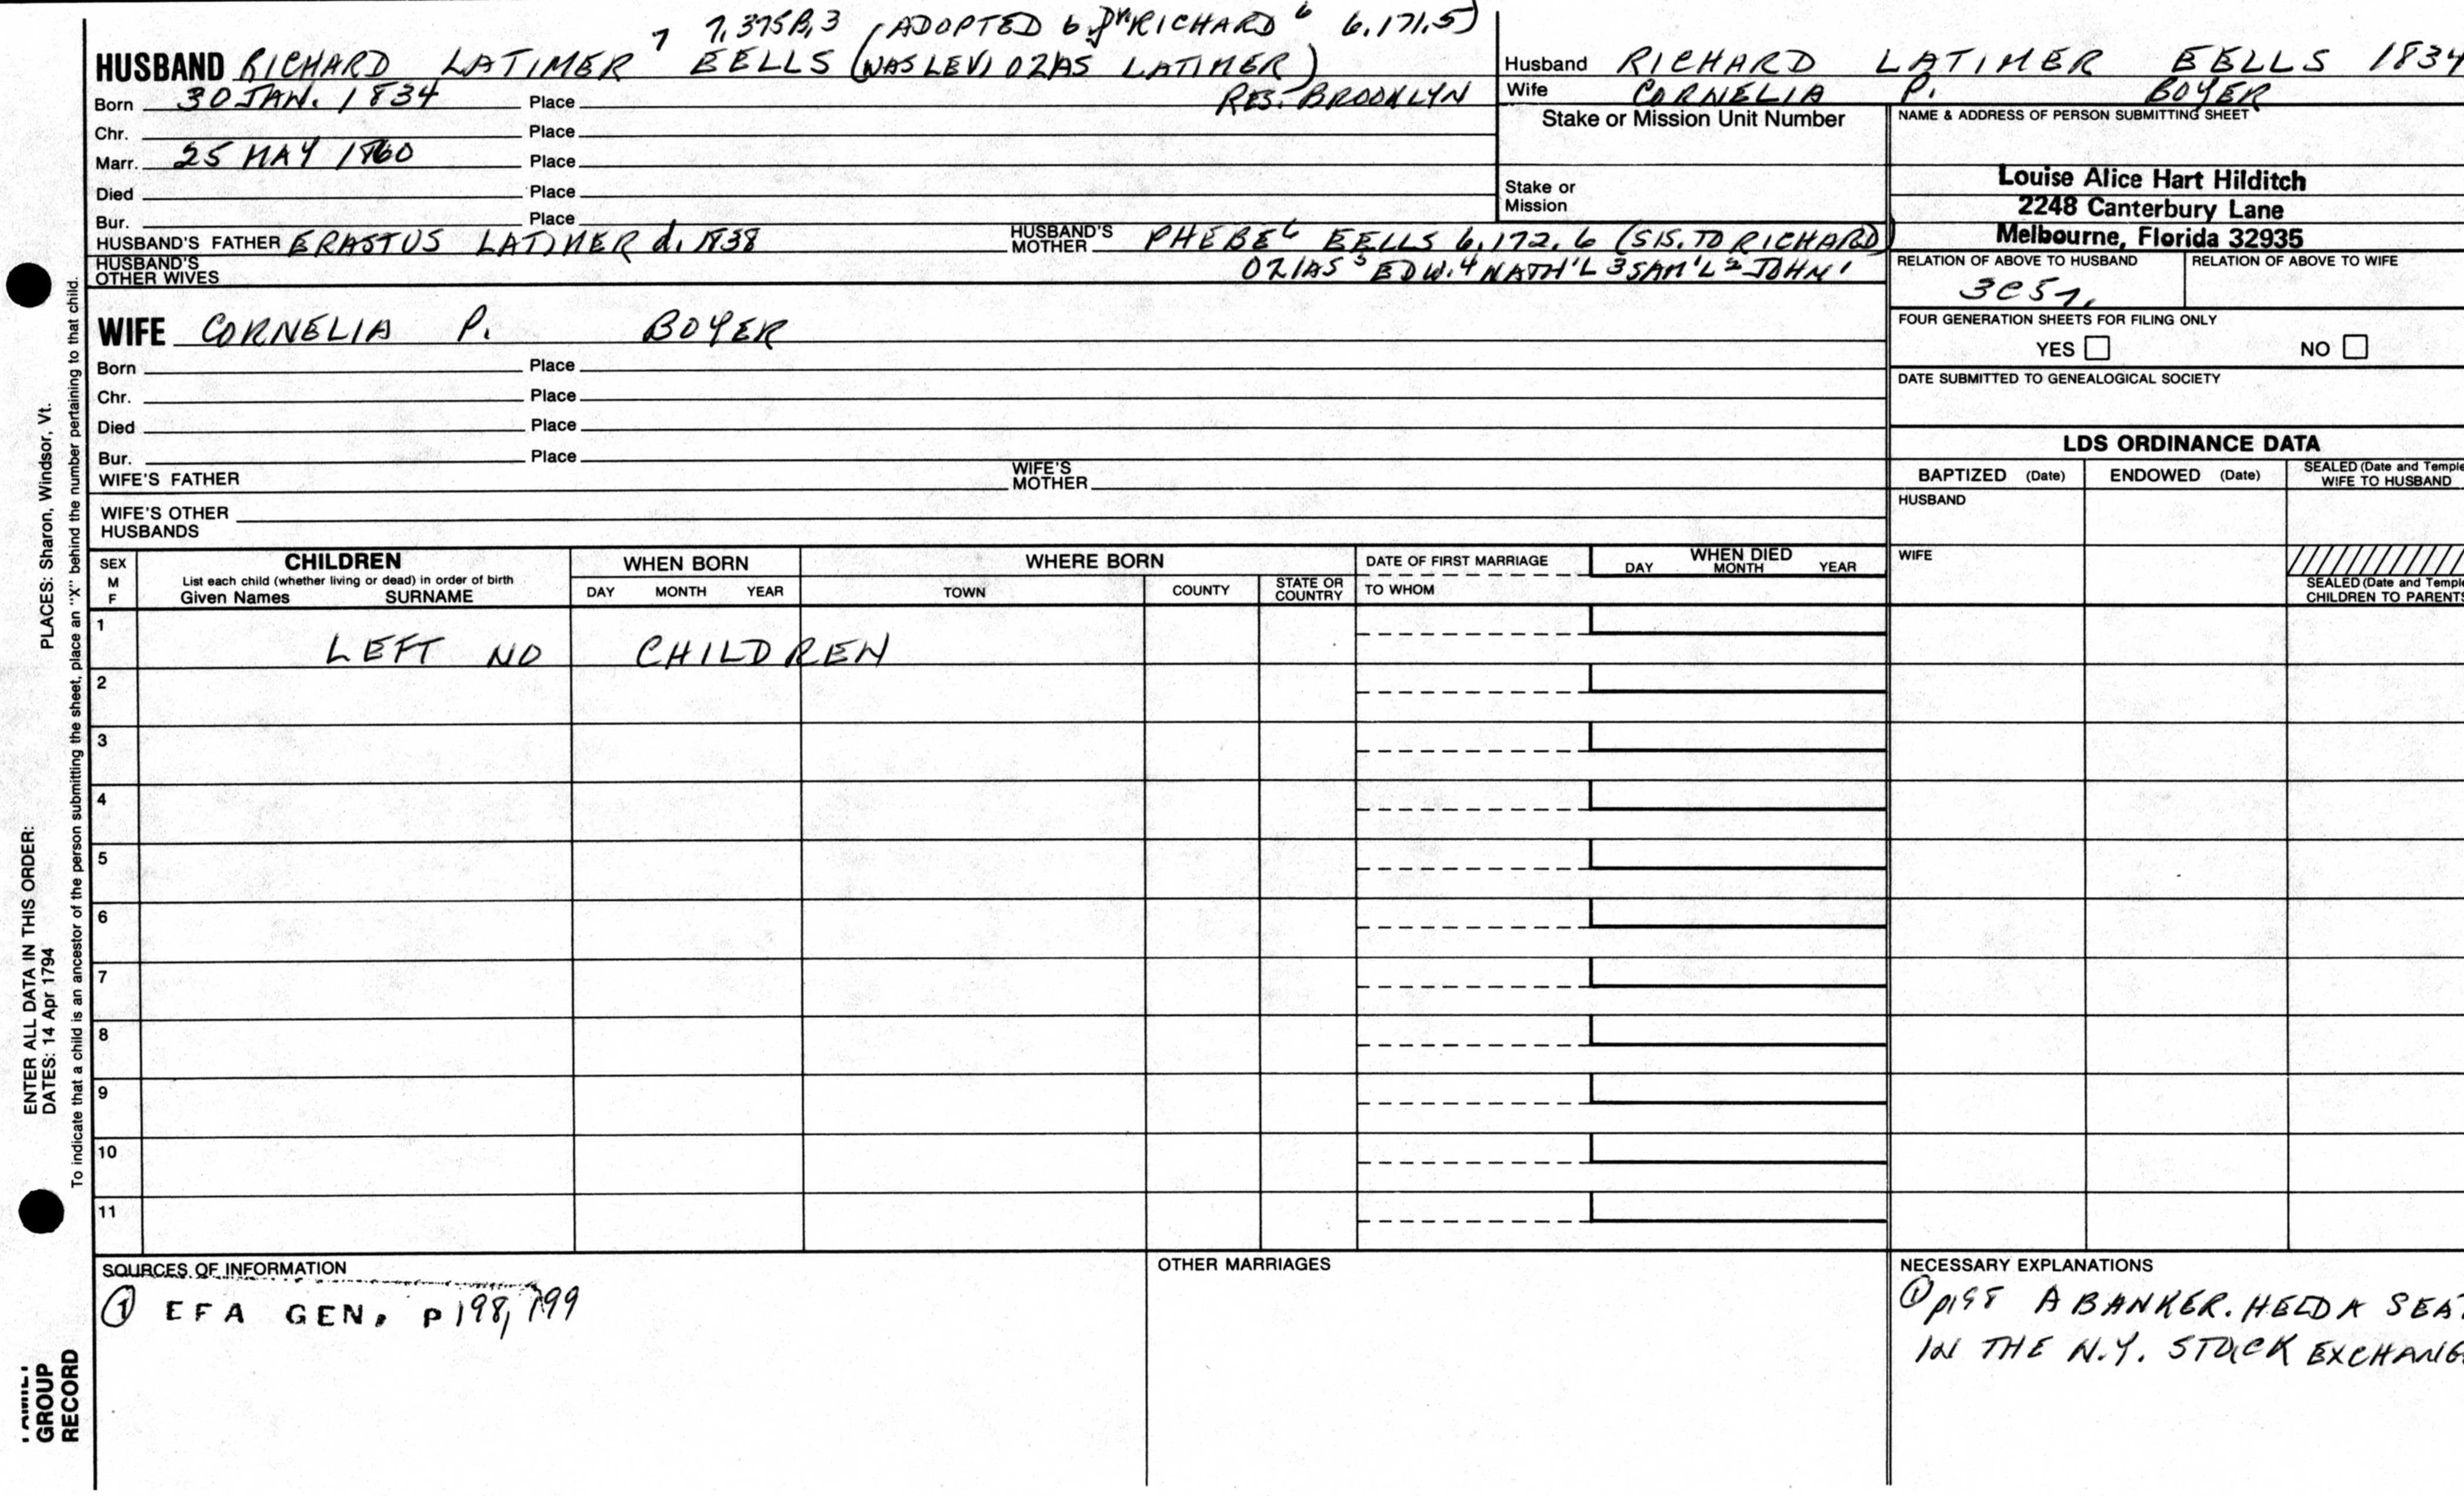 7,375B,3 (ADOPTED by Dr RICHARD 6 6,171,5)
HUSBAND RICHARD LATIMER 7 EELLS (WAS LEVI OZIAS LATIMER)
Born 30 JAN. 1834 Place RES. BROOKLYN
Chr. Place
Marr. 25 MAY 1860 Place
Died Place
Bur. Place
HUSBAND'S FATHER ERASTUS LATIMER d. 1838 HUSBAND'S MOTHER PHEBE 6 EELLS 6,172,6 (SIS. TO RICHARD)
HUSBAND'S OTHER WIVES OZIAS 5 EDW. 4 NATH'L 3 SAM'L 2 JOHN 1
WIFE CORNELIA P. BOYER
Born Place
Chr. Place
Died Place
Bur. Place
WIFE'S FATHER WIFE'S MOTHER
WIFE'S OTHER HUSBANDS
Husband RICHARD LATIMER EELLS 1834
Wife CORNELIA P. BOYER
Stake or Mission Unit Number
Stake or Mission
NAME & ADDRESS OF PERSON SUBMITTING SHEET
Louise Alice Hart Hilditch
2248 Canterbury Lane
Melbourne, Florida 32935
RELATION OF ABOVE TO HUSBAND RELATION OF ABOVE TO WIFE
FOUR GENERATION SHEETS FOR FILING ONLY
YES NO
DATE SUBMITTED TO GENEALOGICAL SOCIETY
LDS ORDINANCE DATA
BAPTIZED (Date) ENDOWED (Date) SEALED (Date and Temple
WIFE TO HUSBAND
HUSBAND
WIFE
SEALED (Date and Temple
CHILDREN TO PARENTS
SEX M F CHILDREN WHEN BORN WHERE BORN DATE OF FIRST MARRIAGE WHEN DIED
List each child (whether living or dead) in order of birth
Given Names SURNAME DAY MONTH YEAR TOWN COUNTY STATE OR COUNTRY TO WHOM DAY MONTH YEAR
1 LEFT NO CHILDREN
2
3
4
5
6
7
8
9
10
11
SOURCES OF INFORMATION
① EFA GEN. p198, 199
OTHER MARRIAGES
NECESSARY EXPLANATIONS
① p198 A BANKER. HELD A SEAT
IN THE N.Y. STOCK EXCHANG
ENTER ALL DATA IN THIS ORDER:
DATES: 14 Apr 1794 PLACES: Sharon, Windsor, Vt.
To indicate that a child is an ancestor of the person submitting the sheet, place an "X" behind the number pertaining to that child.
FAMILY
GROUP
RECORD